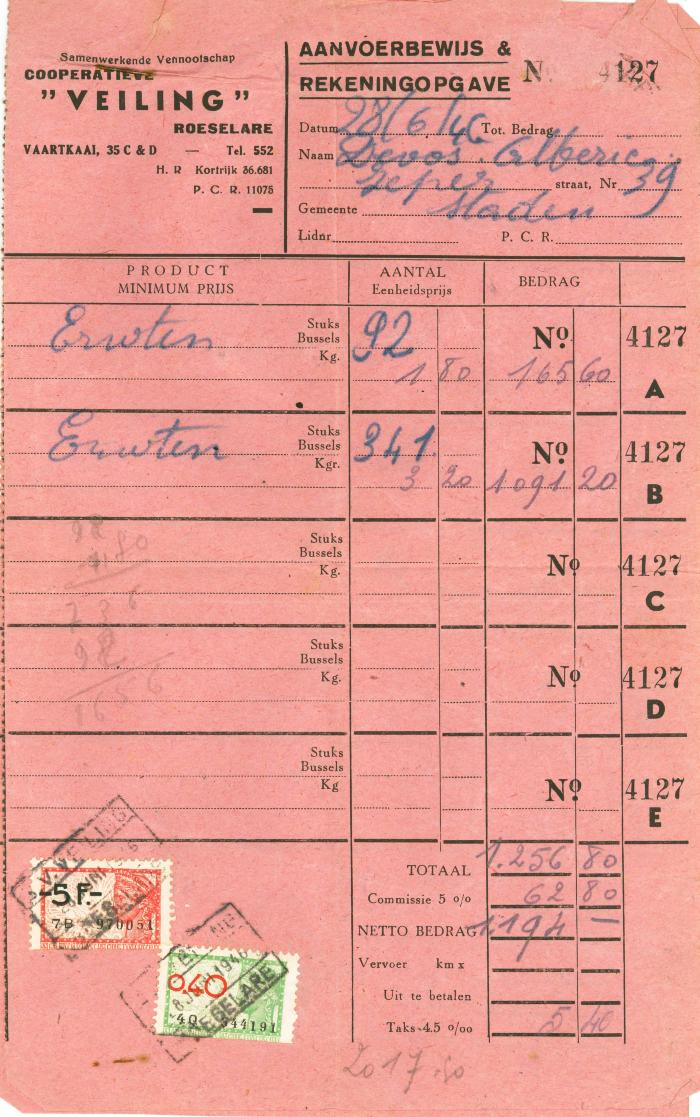 Samenwerkende Vennootschap
COOPERATIEVE
"VEILING"
ROESELARE
VAARTKAAI, 35 C & D — Tel. 552
H. R Kortrijk 36.681
P. C. R. 11075
AANVOERBEWIJS &
REKENINGOPGAVE
N 4127
Datum 28/6/46 Tot. Bedrag
Naam Devos. Alberic.
Ieper straat, Nr 39
Gemeente Staden
Lidnr P. C. R.
PRODUCT
MINIMUM PRIJS
AANTAL
Eenheidsprijs
BEDRAG
Erwten Stuks
Bussels
Kg. 92 No. 4127
1 80 165 60 A
Erwten Stuks
Bussels
Kgr. 341 No 4127
3 20 1091 20 B
Stuks
Bussels
Kg. No 4127
C
Stuks
Bussels
Kg. No 4127
D
Stuks
Bussels
Kg No 4127
E
92
1.80
736
92
1656
TOTAAL 1.256 80
Commissie 5 o/o 62 80
NETTO BEDRAG 1.194 —
Vervoer km x
Uit te betalen
Taks 4.5 o/oo 5 40
2017.40
VEILING
-5F.-
7B 970051
0.40
4Q 344191
1946